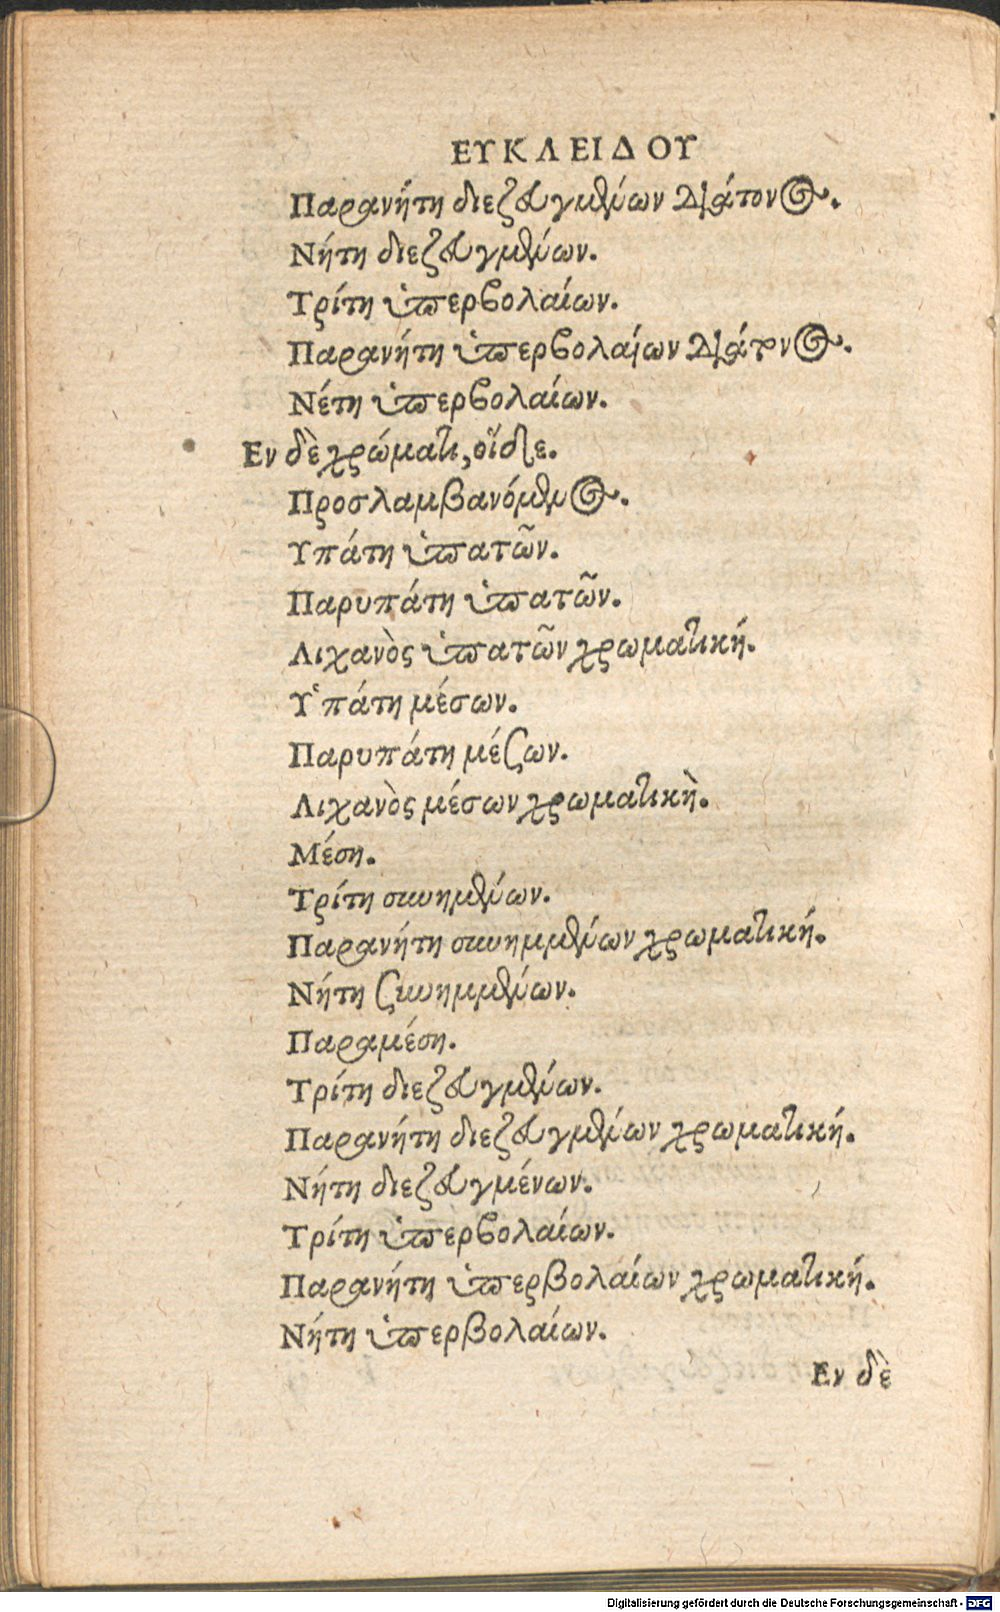 ΕΥΚΛΕΙΔΟΥ
Παρανήτη διεζευγμένων διάτονος.
Νήτη διεζευγμένων.
Τρίτη ὑπερβολαίων.
Παρανήτη ὑπερβολαίων διάτονος.
Νέτη ὑπερβολαίων.
Εν δὲ χρώματι, οἵδε.
Προσλαμβανόμενος.
Υπάτη ὑπατῶν.
Παρυπάτη ὑπατῶν.
Λιχανὸς ὑπατῶν χρωματική.
Υ῾πάτη μέσων.
Παρυπάτη μέσων.
Λιχανὸς μέσων χρωματικὴ.
Μέση.
Τρίτη συνημένων.
Παρανήτη συνημμένων χρωματική.
Νήτη συνημμένων.
Παραμέση.
Τρίτη διεζευγμένων.
Παρανήτη διεζευγμένων χρωματική.
Νήτη διεζευγμένων.
Τρίτη ὑπερβολαίων.
Παρανήτη ὑπερβολαίων χρωματική.
Νήτη ὑπερβολαίων.
Εν δὲ
Digitalisierung gefördert durch die Deutsche Forschungsgemeinschaft - DFG